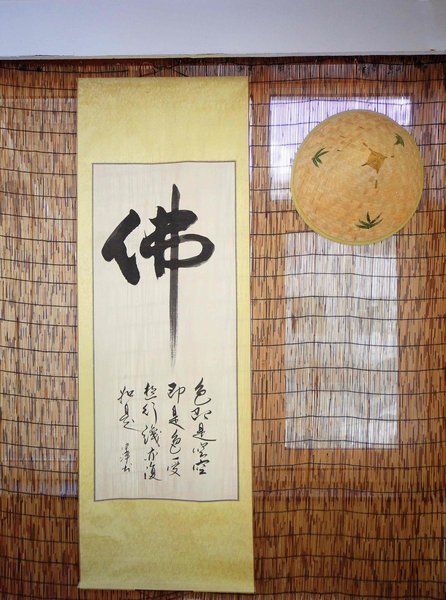 佛
色即是空空
即是色受
想行識亦復
如是